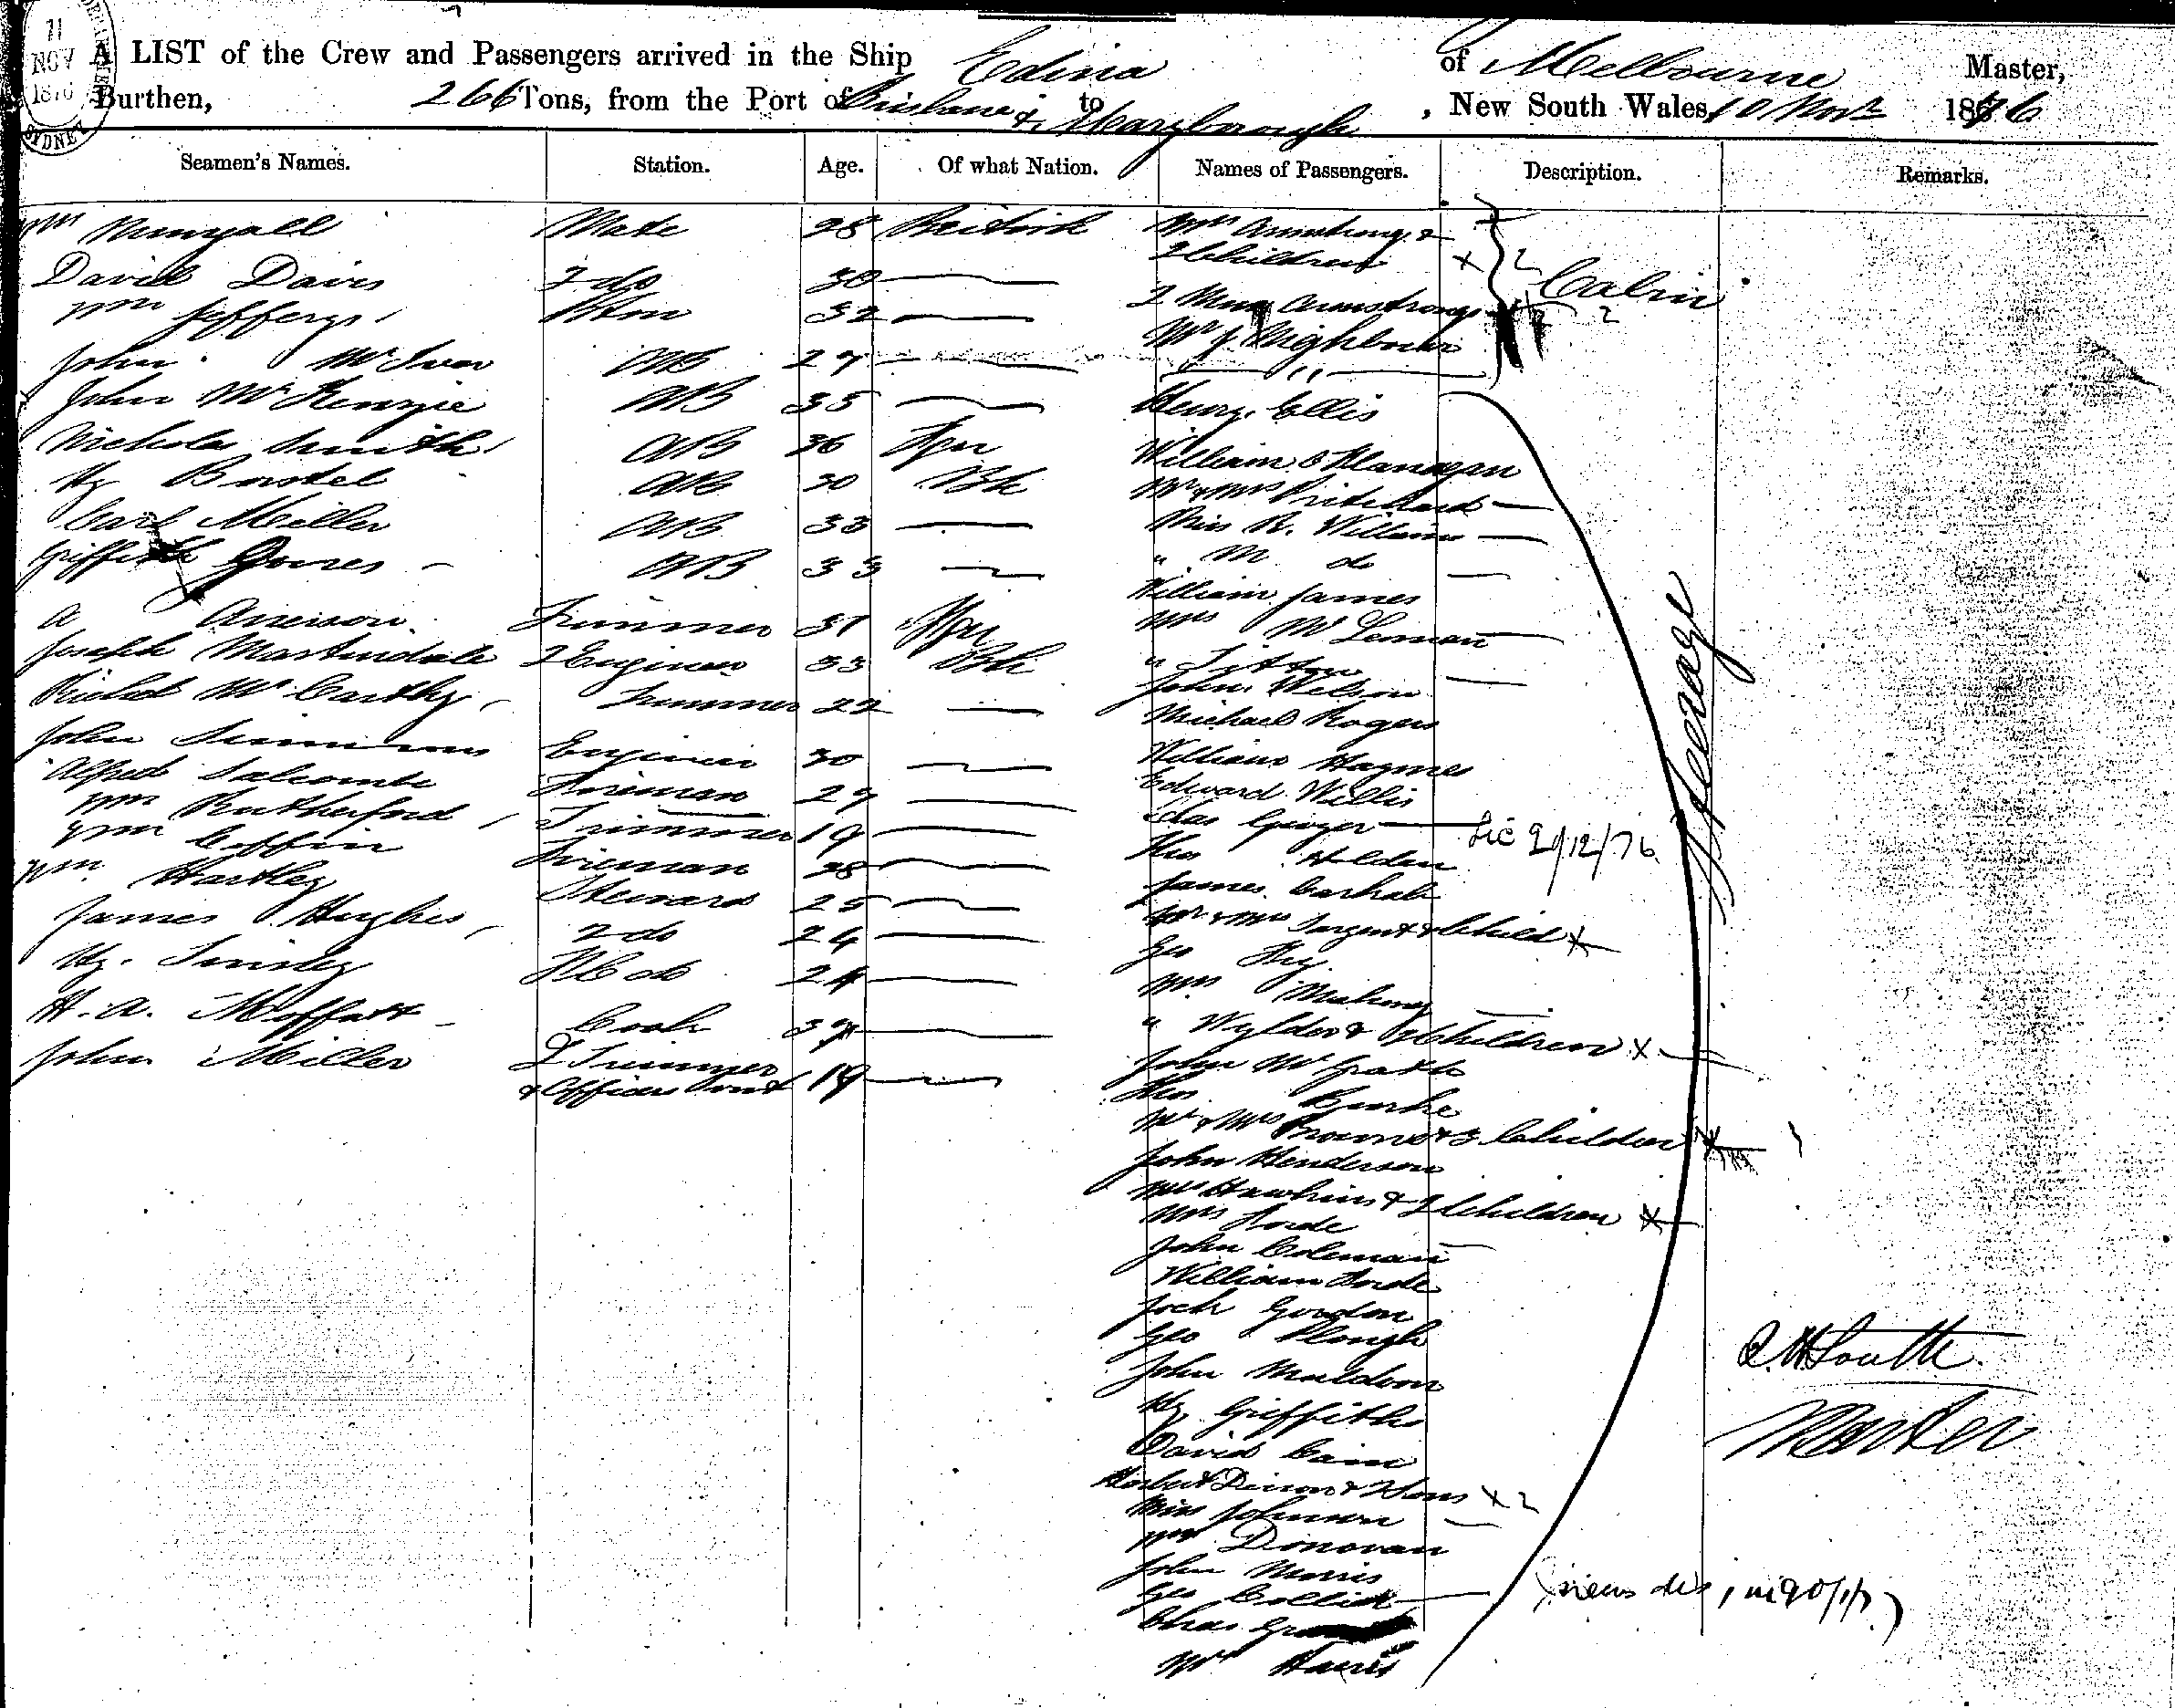 11
NOV
1876
SYDNEY
A LIST of the Crew and Passengers arrived in the Ship Edina of Melbourne Master,
Burthen, 266 Tons, from the Port of Brisbane & Maryborough to , New South Wales, 10 Novr 1876
Seamen's Names. Station. Age. Of what Nation. Names of Passengers. Description. Remarks.
Wm Mate 28 British
David Davis 2 do 30
Wm Jefferys 32
John McIver AB 27
John McKenzie AB 35
Nicholas Smith AB 36
Hy AB 30 Bh
Carl Miller AB 33
Griffith Jones AB 33
A Trimmer 31
Joseph Martindale 2 Engineer 33 Bh
McCarthy Trimmer 22
John Simmons Engineer 30
Alfred Salcombe Fireman 27
Wm Rutherford Trimmer 19
Wm Coffin Fireman 28
Wm Hartley Steward 25
James Hughes 2 do 24
Hy. Tinsley do 24
H. A. Moffatt Cook
John Miller 2 Trimmer
& Officers 19
Mrs Armstrong &
2 Children x 2
2 Miss Armstrongs
Mr J Nighbour
Cabin
Henry Ellis
William O Flanagan
Mr & Mrs Pritchard
Miss R. Williams
" M do
William James
Mrs McLennan
"
John Wilson
Michael Rogers
William Haymes
Edward Willis
Chas
Thos Holden
James
Mr & Mrs Sargent & Child x
Geo
Mrs
" Wylder & Children x
John McGrath
Thos Burke
Mr & Mrs Browne & 3 Children x
John Henderson
Mrs Hawkins & 2 Children x
Mrs Forde
John Coleman
William Forde
Jock Gordon
Geo Plough
John Muldoon
Hy Griffiths
David Cain
Herbert & Sons x 2
Miss Johnson
Wm Donovan
John Morris
Geo
Chas
Mr Harris
Steerage
South
Master